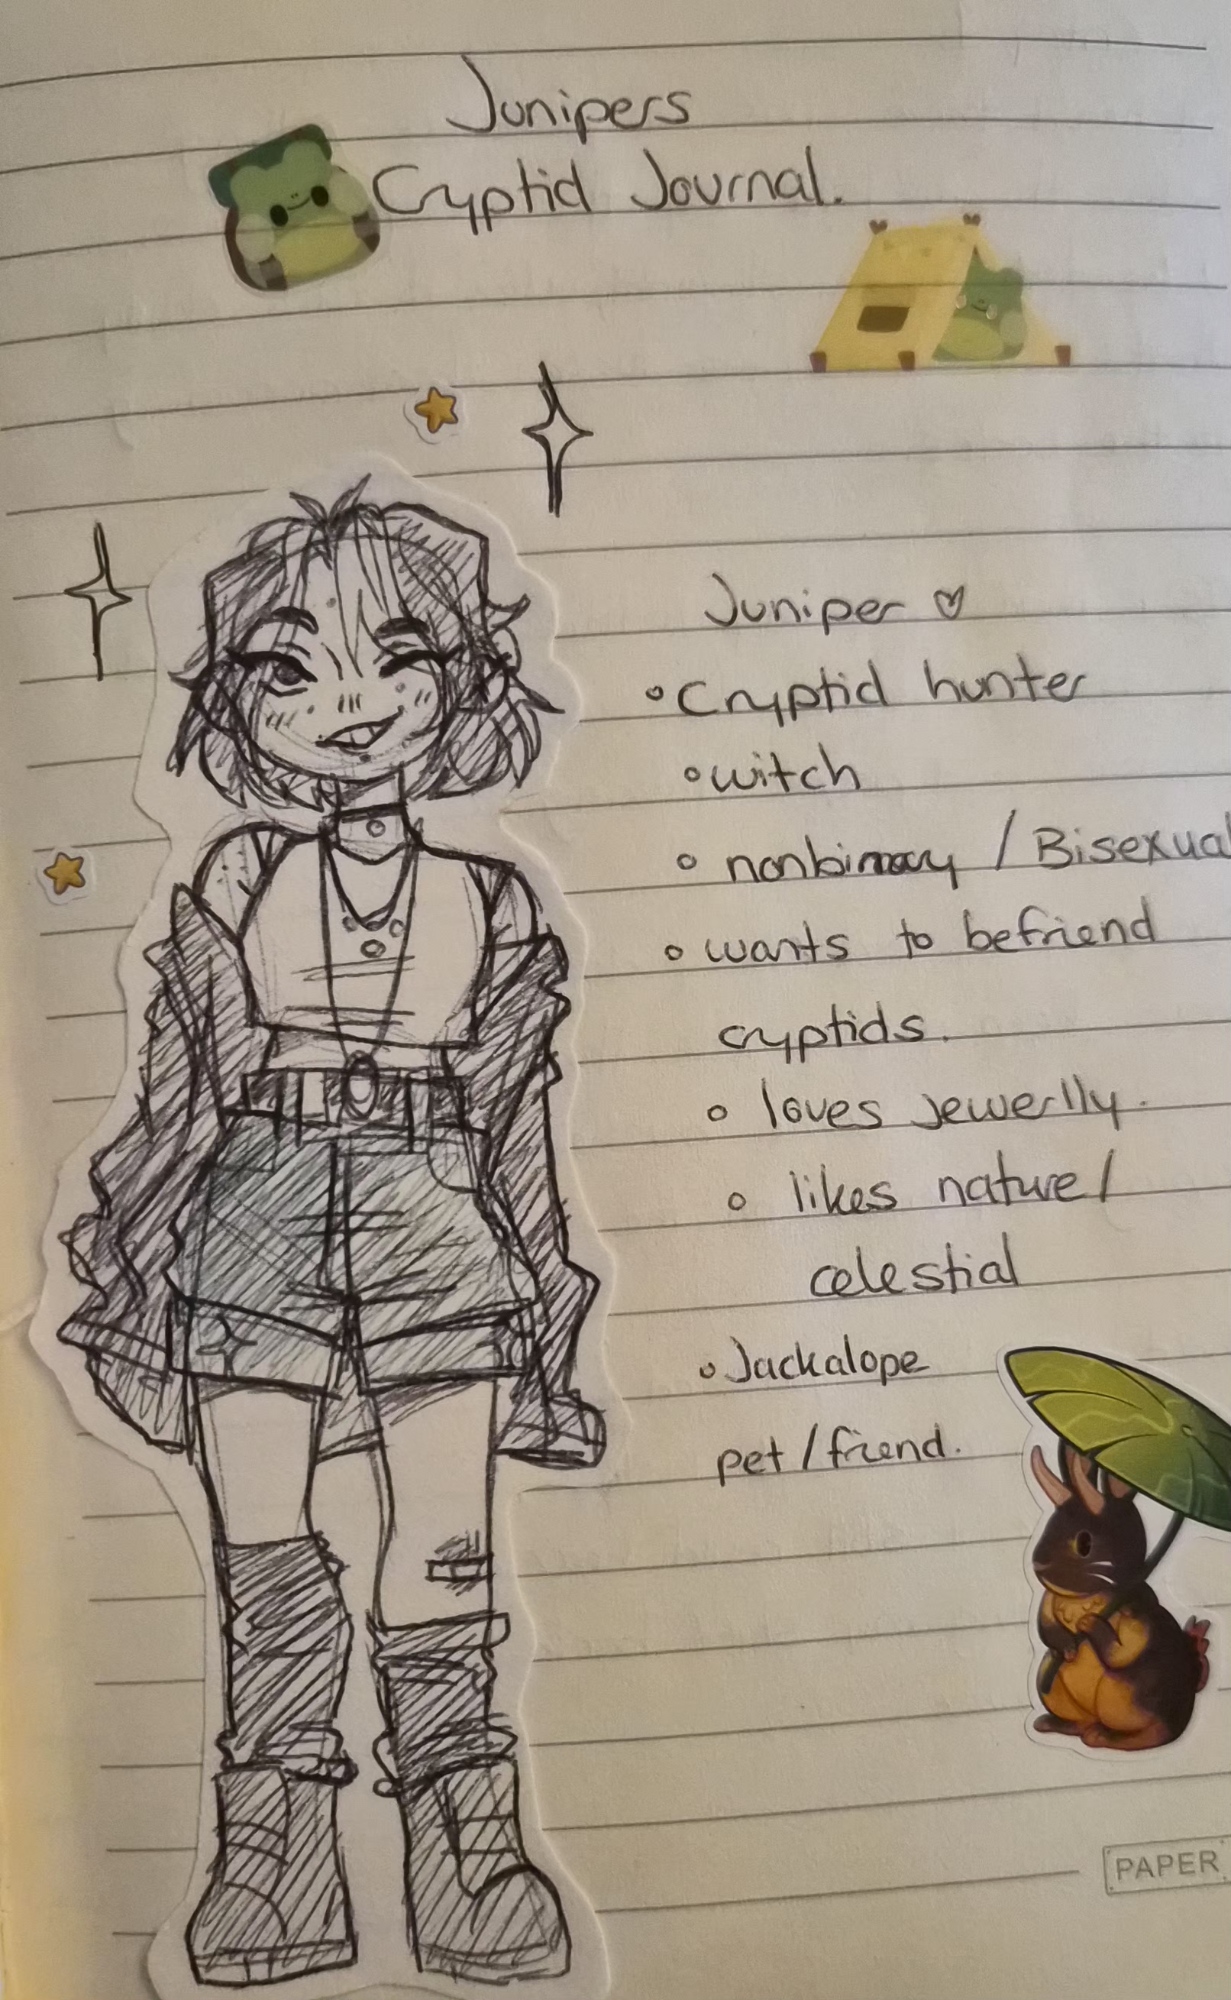 Junipers
Cryptid Journal.
Juniper ♡
• Cryptid hunter
• witch
• nonbinary / Bisexual
• wants to befriend
cryptids.
• loves jewerlly.
• likes nature /
celestial
• Jackalope
pet / friend.
PAPER